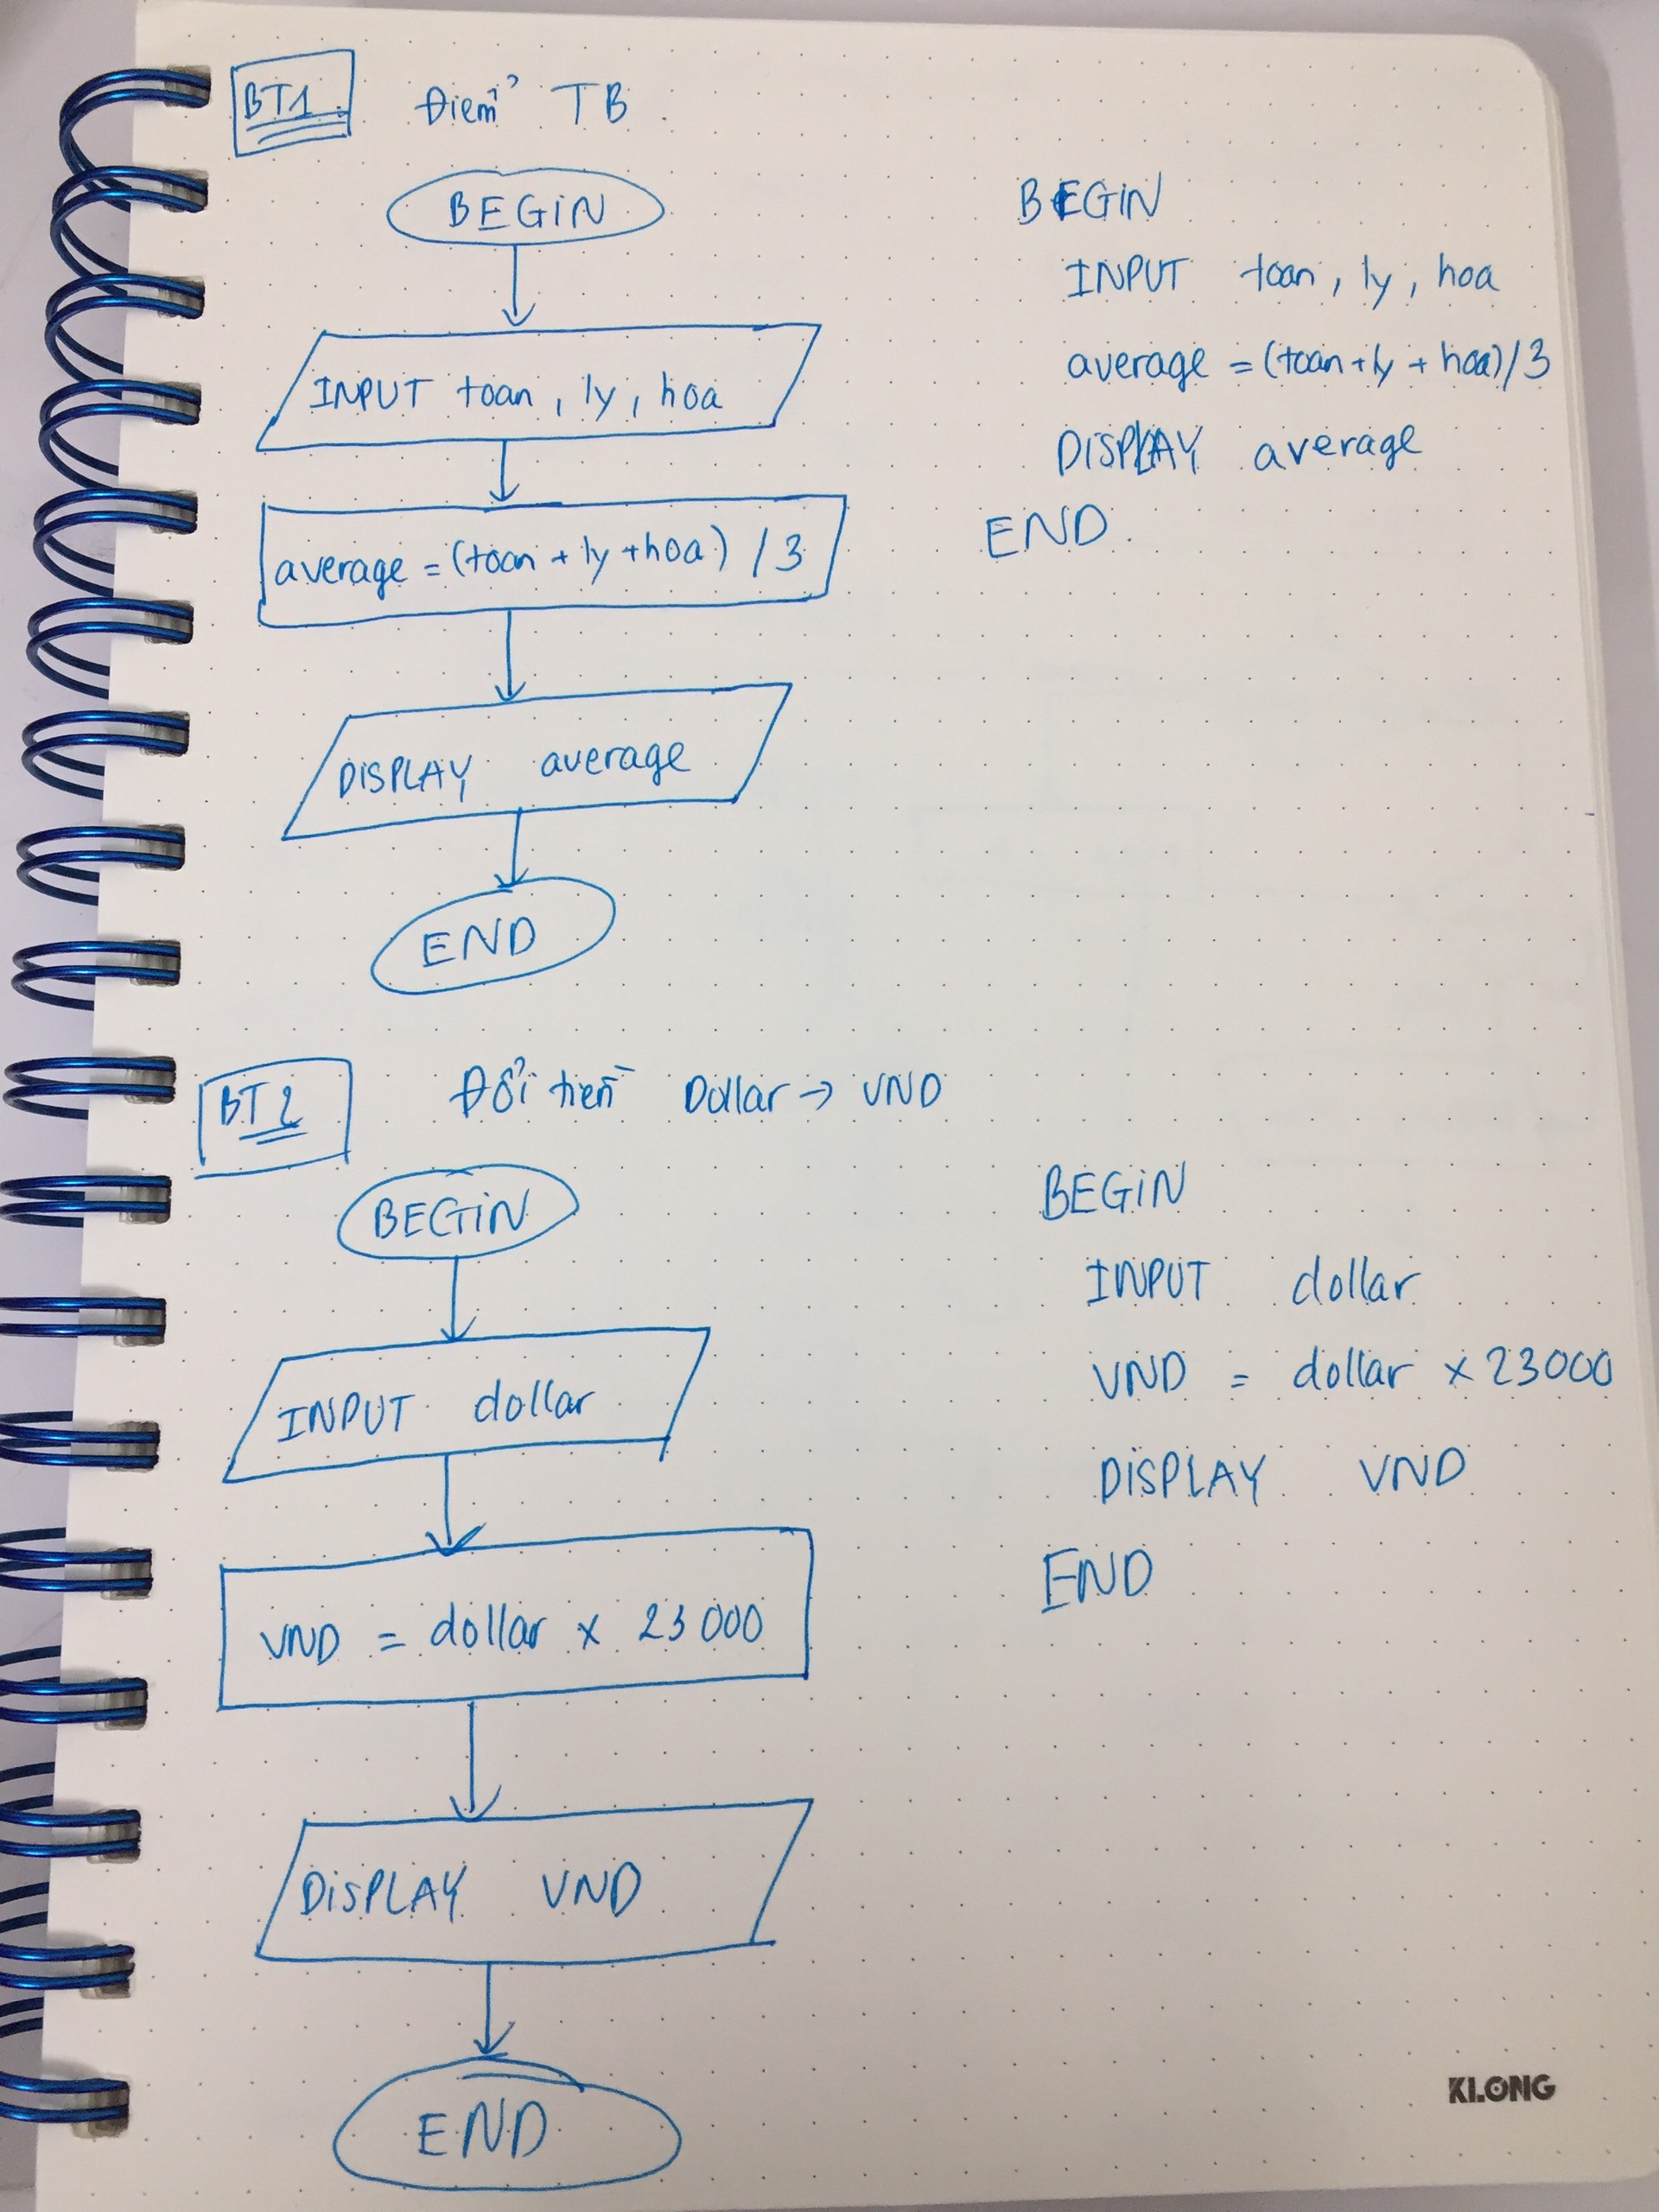 BT1 Điểm TB
BEGIN
INPUT toan, ly, hoa
average = (toan + ly + hoa) / 3
DISPLAY average
END
BEGIN
INPUT toan, ly, hoa
average = (toan + ly + hoa)/3
DISPLAY average
END
BT2 Đổi tiền Dollar → VND
BEGIN
INPUT dollar
VND = dollar x 23000
DISPLAY VND
END
BEGIN
INPUT dollar
VND = dollar x 23000
DISPLAY VND
END
KLONG